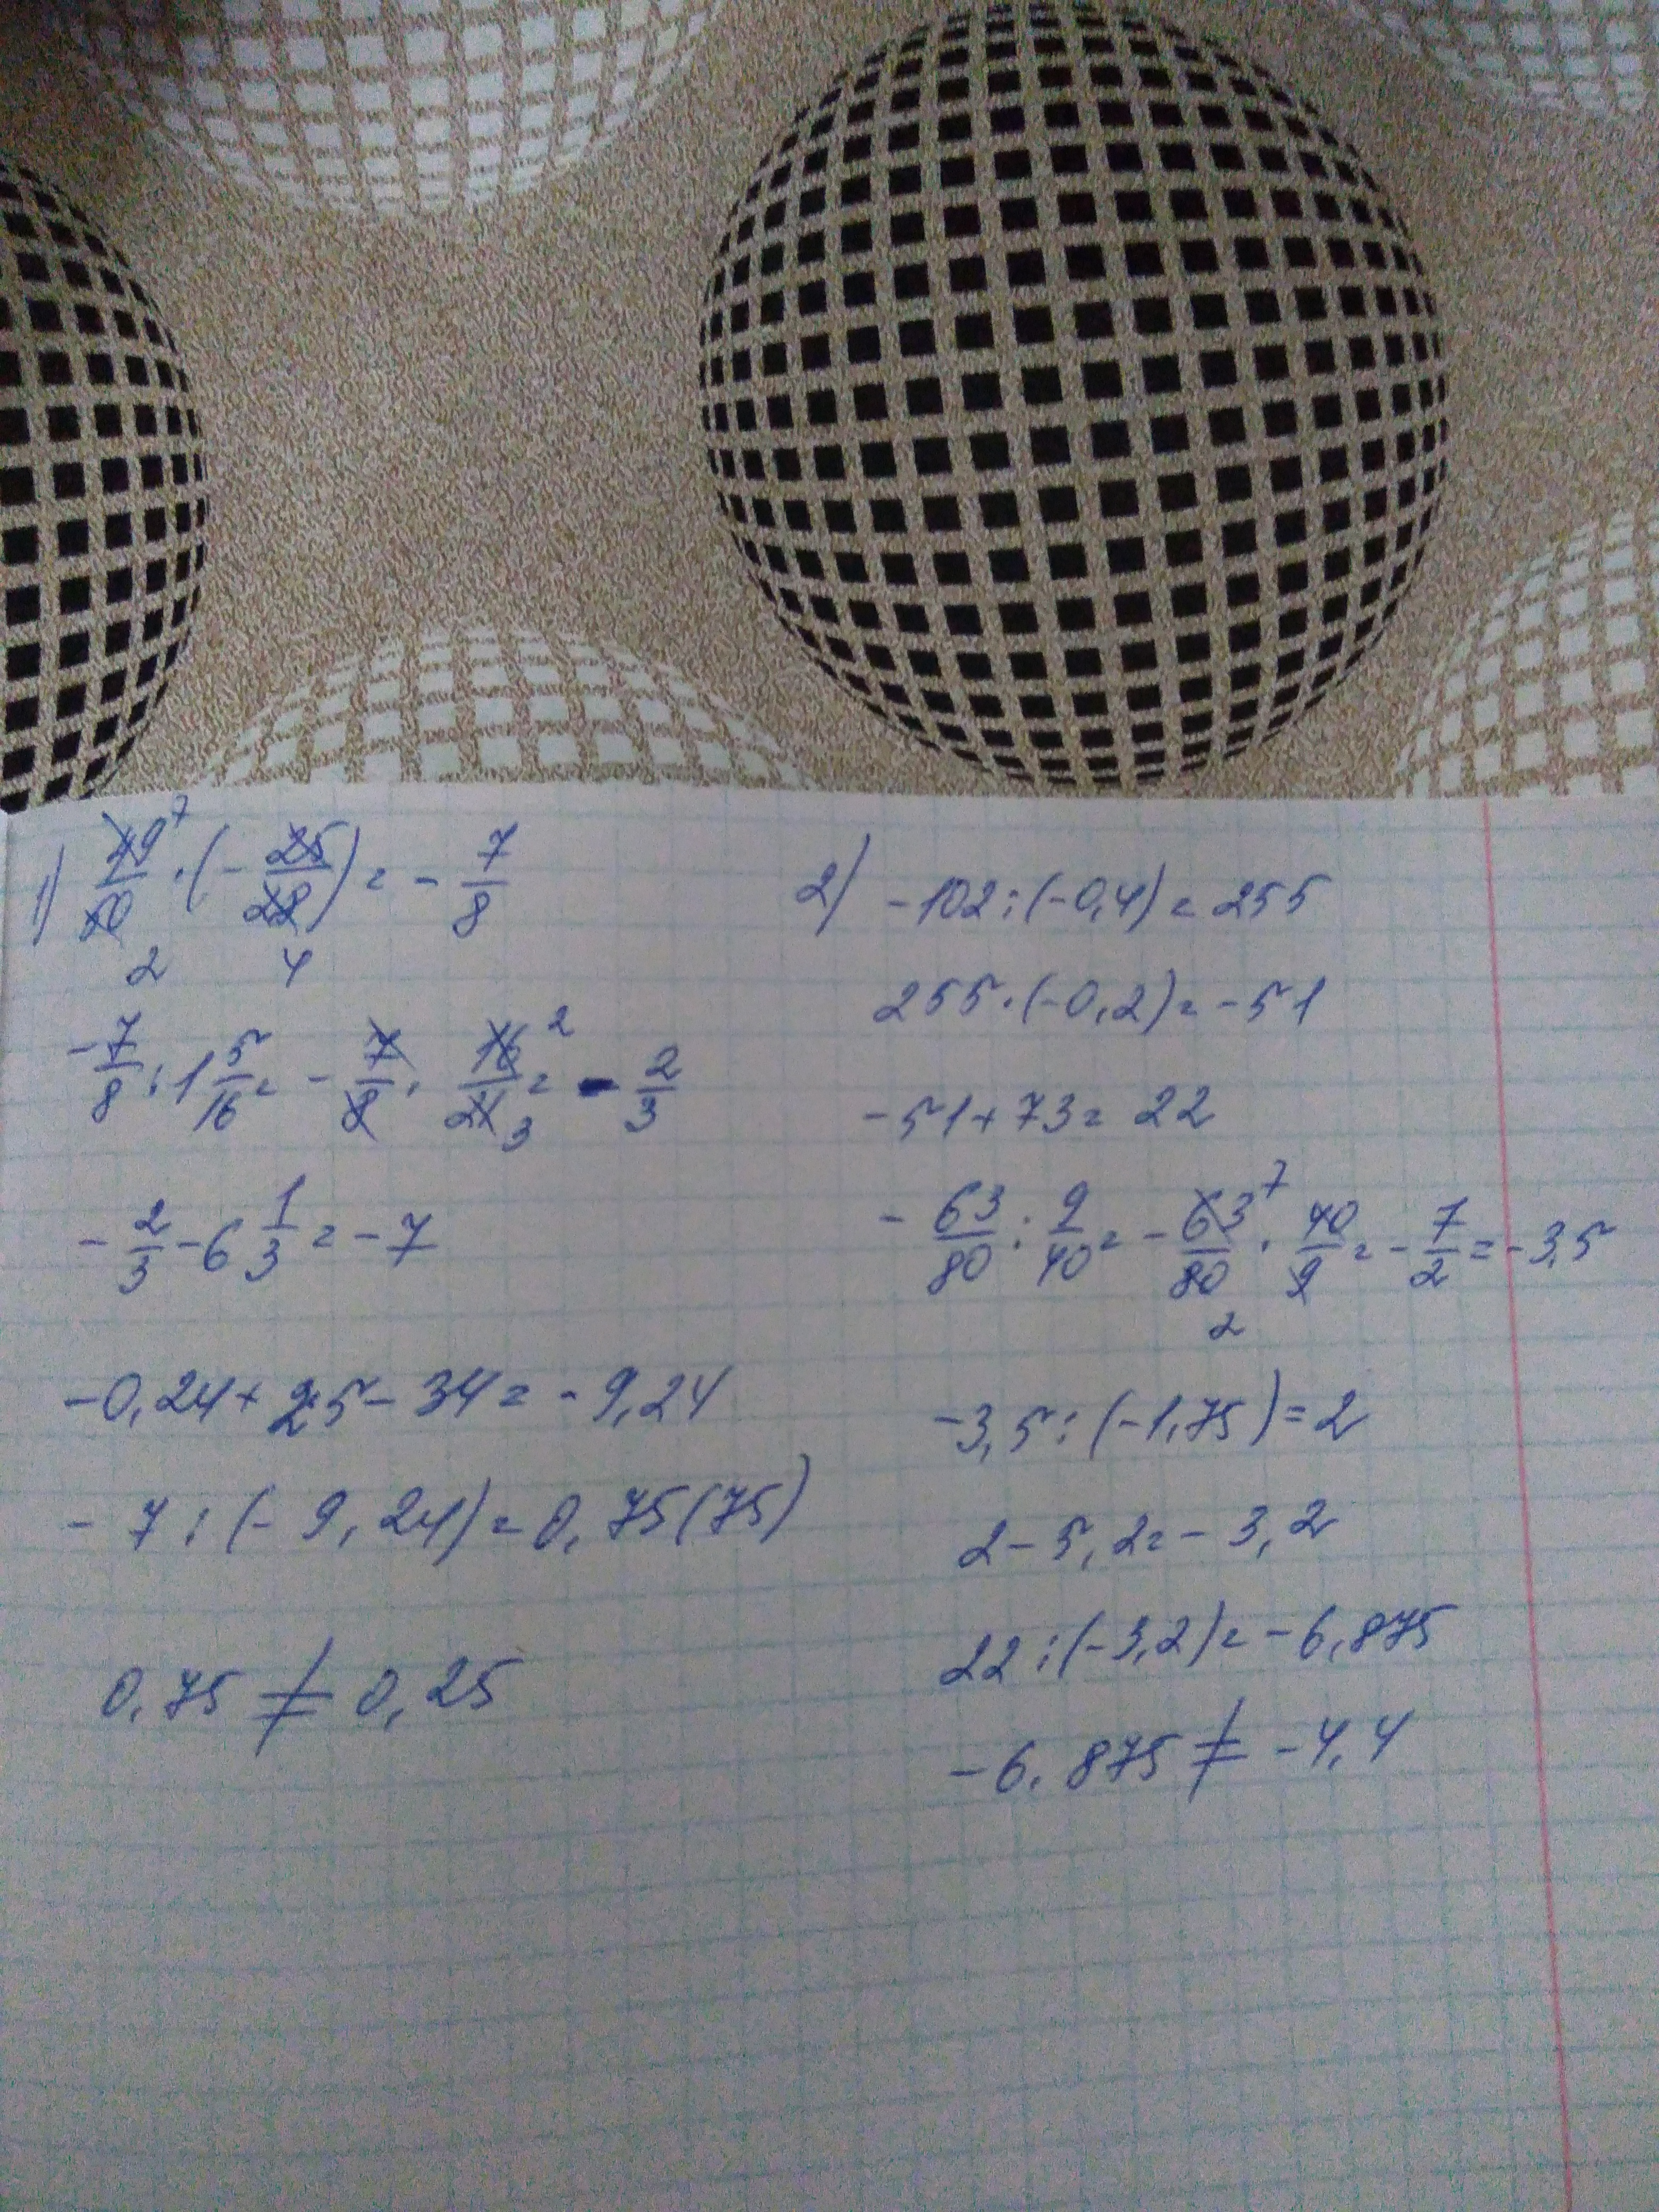 1) 49/10 · (- 25/28) = - 7/8
7
2 4
- 7/8 : 1 5/16 = - 7/8 · 16/21 = - 2/3
2
3
- 2/3 - 6 1/3 = - 7
-0,24 + 25 - 34 = - 9,24
- 7 : (- 9,24) = 0,75(75)
0,75 ≠ 0,25
2) - 102 : (-0,4) = 255
255 · (-0,2) = - 51
- 51 + 73 = 22
- 63/80 : 9/40 = - 63/80 · 40/9 = - 7/2 = - 3,5
7
2
-3,5 : (-1,75) = 2
2 - 5,2 = - 3,2
22 : (-3,2) = - 6,875
- 6,875 ≠ - 4,4